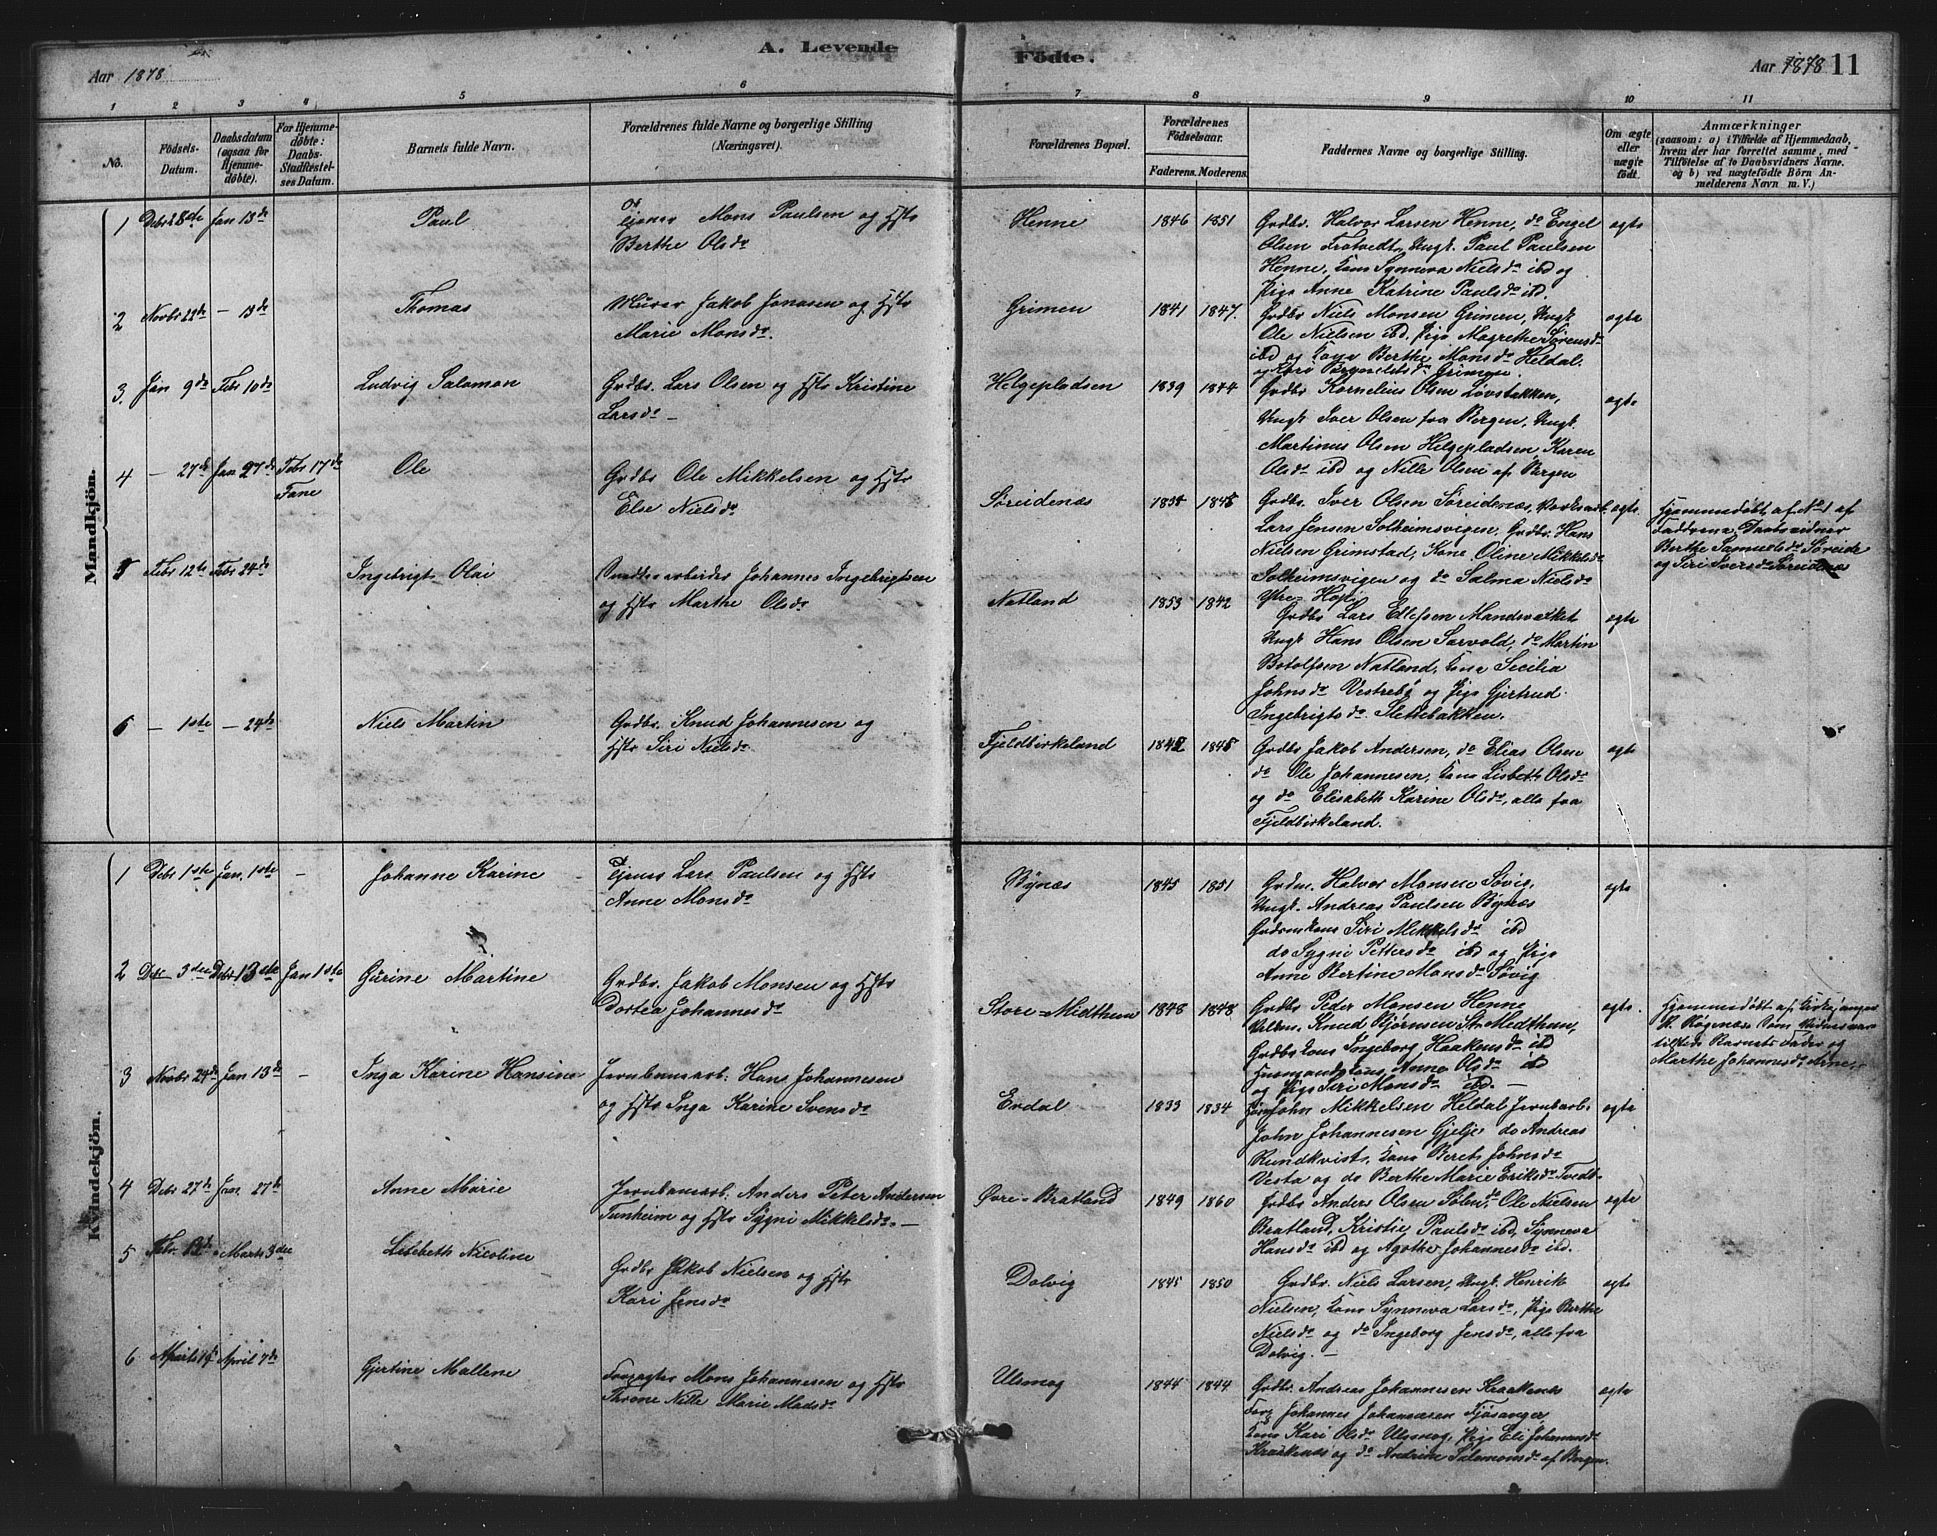 A. Levende Fødte.
Aar 1878
Aar 1878 11
1 2 3 4 5 6 7 8 9 10 11
No.
Födsels-
Datum.
Daabsdatum
(ogsaa for
Hjemme-
döbte).
For Hjemme-
döbte:
Daabs-
Stadfæstel-
ses Datum.
Barnets fulde Navn.
Forældrenes fulde Navne og borgerlige Stilling
(Næringsvei).
Forældrenes Bopæl.
Forældrenes
Födselsaar.
Faderens. Moderens.
Faddernes Navne og borgerlige Stilling.
Om ægte
eller
uægte
födt.
Anmærkninger
(saasom: a) i Tilfælde af Hjemmedaab,
hvem der har forrettet samme, med
Tilföielse af to Daabsvidners Navne,
og b) ved uægtefödte Börn An-
melderens Navn m. V.)
Mandkjön.
1 Debr 28de Jan 13de Paul
Mons Paulsen og Hstr
Berthe Olsdr
Henne 1846 1851
Grdbr. Halvor Larsen Henne, do Engel
Olsen Trotvedt, Ungk. Paul Paulsen
Henne, Kone Synneva Nielsdr ibd og
Pige Anne Katrine Paulsdr ibd.
ægte
2 Novbr 22de — 13de Thomas
Murer Jakob Jonasen og Hstr
Marie Monsdr.
Grimen 1841 1847.
Grdbr Niels Monsen Grimen, Ungk.
Ole Nielsen ibd. Pige Magrethe Sørensdr
ibd og Kone Berthe Monsdr Heldal.
og Kari Grimen.
ægte
3. Jan 9de Febr 10de Ludvig Salamon
Grdbr. Lars Olsen og Hstr Kristine
Larsdr —
Helgepladsen 1839 1844
Grdbr Kornelius Olsen Løvstakken,
Ungk. Iver Olsen fra Bergen, Ungk.
Martinus Olsen Helgepladsen, Karen
Olsdr ibd og Nille Olsen af Bergen
ægte
4 — 27de Jan 27de Febr 17de
Fane
Ole
Grdbr Ole Mikkelsen og Hstr
Else Nielsdr
Søreidenæs 1835 1845
Grdbr. Iver Olsen Søreidenæs,
Lars Jensen Solheimsvigen, Grdbr. Hans
Nielsen Grimstad, Kone Oline Mikkelsdr
Solheimsvigen og do Salma Nielsdr
Ytre-Hop.
ægte.
Hjemmedøbt af No 1 af
Faddrene. Daabsvidner
Berthe Samuelsdr Søreide
og Siri Iversdr Søreidenæs
5 Febr 12te Febr 24de Ingebrigt Olai
Johannes Ingebrigtsen
og Hstr Marthe Olsdr
Natland 1853 1842
Grdbr Lars Ellefsen Mandverket
Ungk Hans Olsen Sørvold, do Martin
Botolfsen Natland, Kone Secilia
Johnsdr Vestrebø og Pige Gjertrud
Ingebrigtsdr Slettebakken.
ægte
6 — 1ste — 24de Niels Martin
Grdbr. Knud Johannesen og
Hstr Siri Nielsdr
Fjeldbirkeland 1842 1845
Grdbr Jakob Andersen, do Elias Olsen
do Ole Johannesen, Kone Lisbeth Olsdr
og do Elisabeth Karine Olsdr, alle fra
Fjeldbirkeland.
ægte
Kvindekjön.
1 Debr 1ste Jan. 1ste — Johanne Karine
Lars Paulsen og Hstr
Anne Monsdr
Bynæs 1845 1851
Grdm. Halvor Monsen Søvig,
Ungk. Andreas Paulsen Bynæs
Siri Mikkelsdr ibd
do Sygni Pettersdr ibd og Pige
Anne Bertine Monsdr Søvig
ægte
2 Debr 3die Debr 13de Jan 1ste Gurine Martine
Grdbr. Jakob Monsen og Hstr
Dortea Johannesdr
Store-Midthun 1848 1848
Grdbr Peder Monsen Henne
Knud Bjørnsen St. Midthun,
Grdbrkone Ingeborg Haakensdr ibd
Husmandskone Anna Olsdr ibd
og Pige Siri Monsdr ibd. —
ægte.
Hjemmedøbt af Kirkesanger
Røgenæs. Som Vidner var
tilstede Barnets Fader og
Marthe Johannesdr
3 Novbr 24de Jan 13de — Inga Karine Hansine
Jernbanearb. Hans Johannesen
og Hstr Inga Karine Svensdr
Erdal 1833 1834
John Mikkelsen Heldal Jernbarb.
John Johannesen Gjelje do Andreas
Rundkvist, Kone Beret Johnsdr
Vesta og do Berthe Marie Eriksdr Tvedt
ægte
4 Debr 27de Jan. 27de Anne Marie
Jernbanearb. Anders Peter Andersen
Tunheim og Hstr Sygni Mikkelsdr. —
Øvre-Bratland 1849 1860
Grdbr Anders Olsen do Ole Nielsen
Bratland, Kristie Paulsdr ibd, Synneva
Hansdr ibd og Agothe Johannesdr ibd.
ægte
5 Febr. 13de Marts 3die Lisebeth Nicoline
Grdbr Jakob Nielsen og Hstr
Kari Jensdr
Dolvig 1845 1850
Grdbr. Niels Larsen, Ungk. Henrik
Nielsen, Kone Synneva Larsdr, Pige Berthe
Nielsdr og do Ingeborg Jensdr, alle fra
Dolvig. —
ægte
6 April 7de Gjertine Mallene
Forpagter Mons Johannesen og Hstr
Throne Nille Marie Madsdr
Ulsmog 1844 1844
Grdbr. Andreas Johannesen Kraakenæs
Forp Johannes Johannesen Fjøsanger,
Kone Kari Olsdr Ulsmog, Pige Eli Johannesdr
Kraakenæs og do Andrine Salomonsdr af Bergen.
ægte